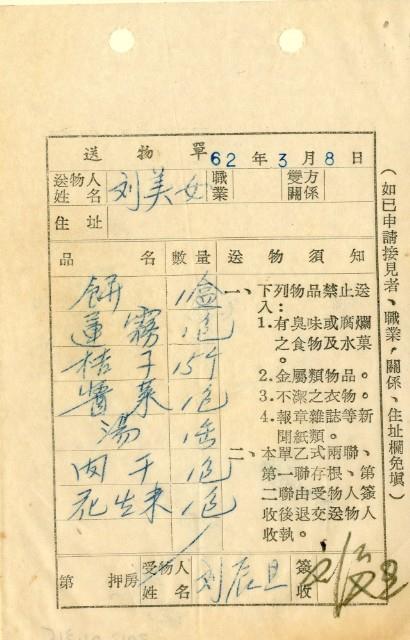 送物單 62年3月8日
送物人姓名 刘美女 職業 雙方關係
住址
品名 數量 送物須知
餅 1盒
蓮霧 1包
桔子 15个
醬菜 1包
湯 1缶
肉干 1包
花生米 1包
一、下列物品禁止送入：
1.有臭味或腐爛之食物及水菓。
2.金屬類物品。
3.不潔之衣物。
4.報章雜誌等新聞紙類。
二、本單乙式兩聯、第一聯存根、第二聯由受物人簽收後退交送物人收執。
第 押房 受物人姓名 刘辰旦 簽收
（如已申請接見者、職業，關係、住址欄免填）